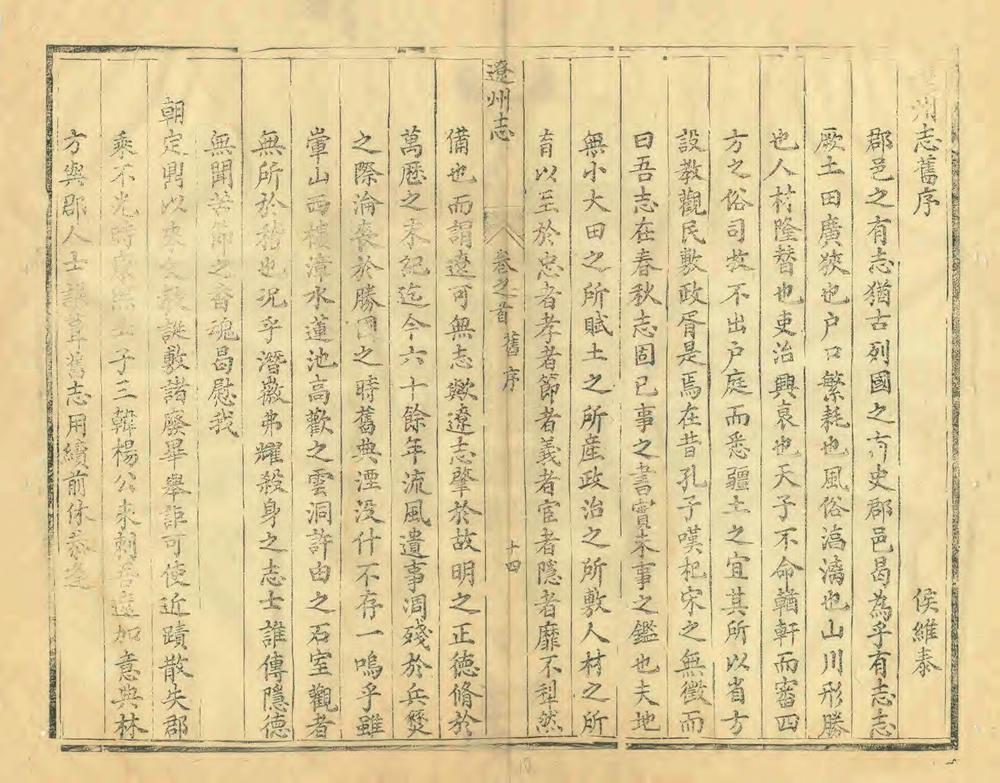 州志舊序
侯維泰
郡邑之有志猶古列國之有史郡邑曷為乎有志志
厥土田廣狹也户口繁耗也風俗澆漓也山川形勝
也人材隆替也吏治興衰也天子不命輶軒而審四
方之俗司牧不出户庭而悉疆土之宜其所以省方
設教觀民敷政胥是焉在昔孔子嘆杞宋之無徵而
曰吾志在春秋志固已事之書實未事之鑑也夫地
無小大田之所賦土之所產政治之所敷人材之所
育以至於忠者孝者節者義者宦者隱者靡不犁然
遼州志
卷之首
舊序
十四
備也而謂遼可無志歟遼志肇於故明之正德脩於
萬曆之末紀迄今六十餘年流風遺事凋殘於兵燹
之際淪喪於勝國之時舊典湮没什不存一嗚乎雖
輋山西樓漳水蓮池高歡之雲洞許由之石室觀者
無所於稽也况乎潛徽弗耀殺身之志士誰傳隱德
無聞苦節之香魂曷慰我
朝定鼎以來誕敷諸廢畢舉詎可使近蹟散失郡
乘不光時子三韓楊公來刺吾遼加意典林
方輿郡人士舊志用續前休